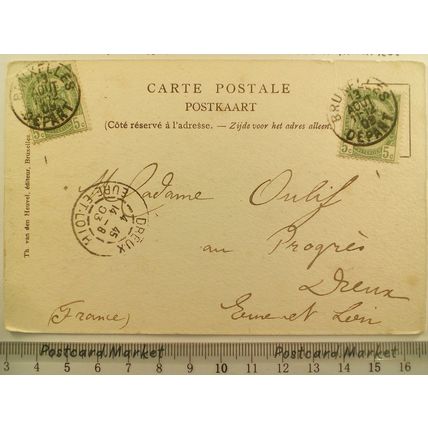 CARTE POSTALE
POSTKAART
(Côté réservé à l'adresse. – Zijde voor het adres alleen
BRUXELLES
AOUT
DEPART
5c
BRUXELLES
AOUT
DEPART
5c
Th. van den Heuvel, éditeur, Bruxelles.
Madame Oulif
au Progrès
Dreux
Eure et Loir
(France)
DREUX
14 45
14 8
03
EURE-ET-LOIR
Postcard.Market
Postcard.Market
3 4 5 6 7 8 9 10 11 12 13 14 15 16